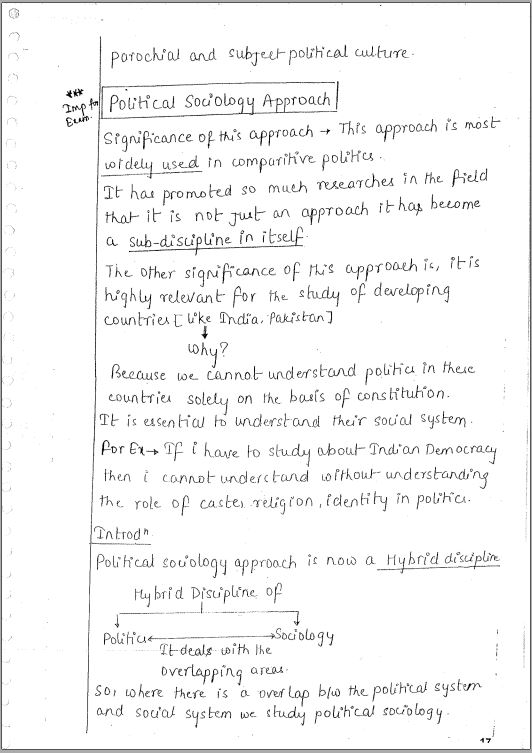 parochial and subject political culture.
***
Imp for
Exam.
Political Sociology Approach
Significance of this approach → This approach is most
widely used in comparitive politics.
It has promoted so much researches in the field
that it is not just an approach it has become
a sub-discipline in itself.
The other significance of this approach is, it is
highly relevant for the study of developing
countries [like India, Pakistan]
↓
why?
Because we cannot understand politics in these
countries solely on the basis of constitution.
It is essential to understand their social system.
For Ex → If i have to study about Indian Democracy
then i cannot understand without understanding
the role of caste, religion, identity in politics.
Introdⁿ.
Political sociology approach is now a Hybrid discipline
Hybrid Discipline of
Politics ↔ Sociology
It deals with the
overlapping areas.
So, where there is a overlap b/w the political system
and social system we study political sociology.
17